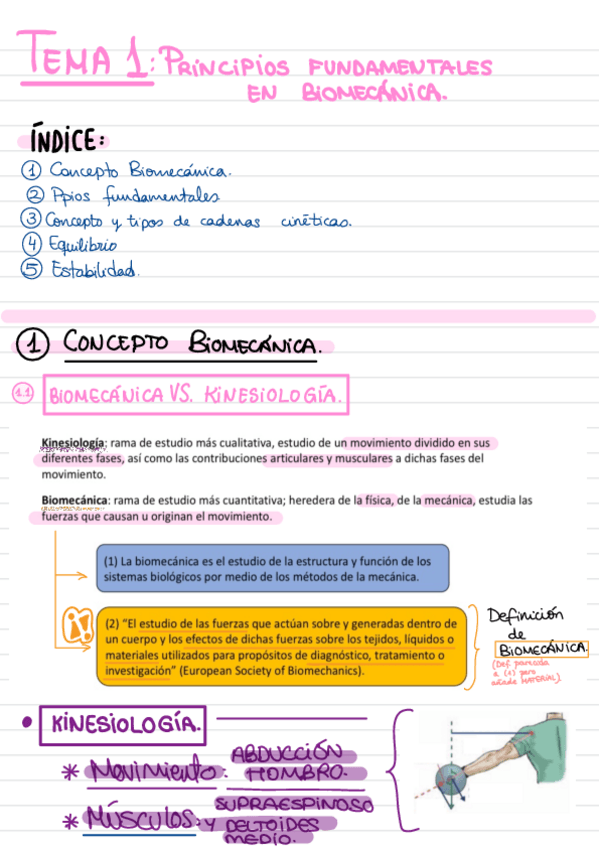 TEMA 1: PRINCIPIOS FUNDAMENTALES
EN BIOMECÁNICA.
ÍNDICE:
① Concepto Biomecánica.
② Ppios fundamentales
③ Concepto y tipos de cadenas cinéticas.
④ Equilibrio
⑤ Estabilidad.
① CONCEPTO BIOMECÁNICA.
1.1 BIOMECÁNICA VS. KINESIOLOGÍA.
Kinesiología: rama de estudio más cualitativa, estudio de un movimiento dividido en sus
diferentes fases, así como las contribuciones articulares y musculares a dichas fases del
movimiento.
Biomecánica: rama de estudio más cuantitativa; heredera de la física, de la mecánica, estudia las
fuerzas que causan u originan el movimiento.
(1) La biomecánica es el estudio de la estructura y función de los
sistemas biológicos por medio de los métodos de la mecánica.
(2) "El estudio de las fuerzas que actúan sobre y generadas dentro de
un cuerpo y los efectos de dichas fuerzas sobre los tejidos, líquidos o
materiales utilizados para propósitos de diagnóstico, tratamiento o
investigación" (European Society of Biomechanics).
Definición
de
BIOMECÁNICA.
(Def. parecida
a (1) pero
añade MATERIAL).
• KINESIOLOGÍA.
* Movimiento: ABDUCCIÓN
HOMBRO.
* MÚSCULOS: SUPRAESPINOSO
y DELTOIDES
MEDIO.